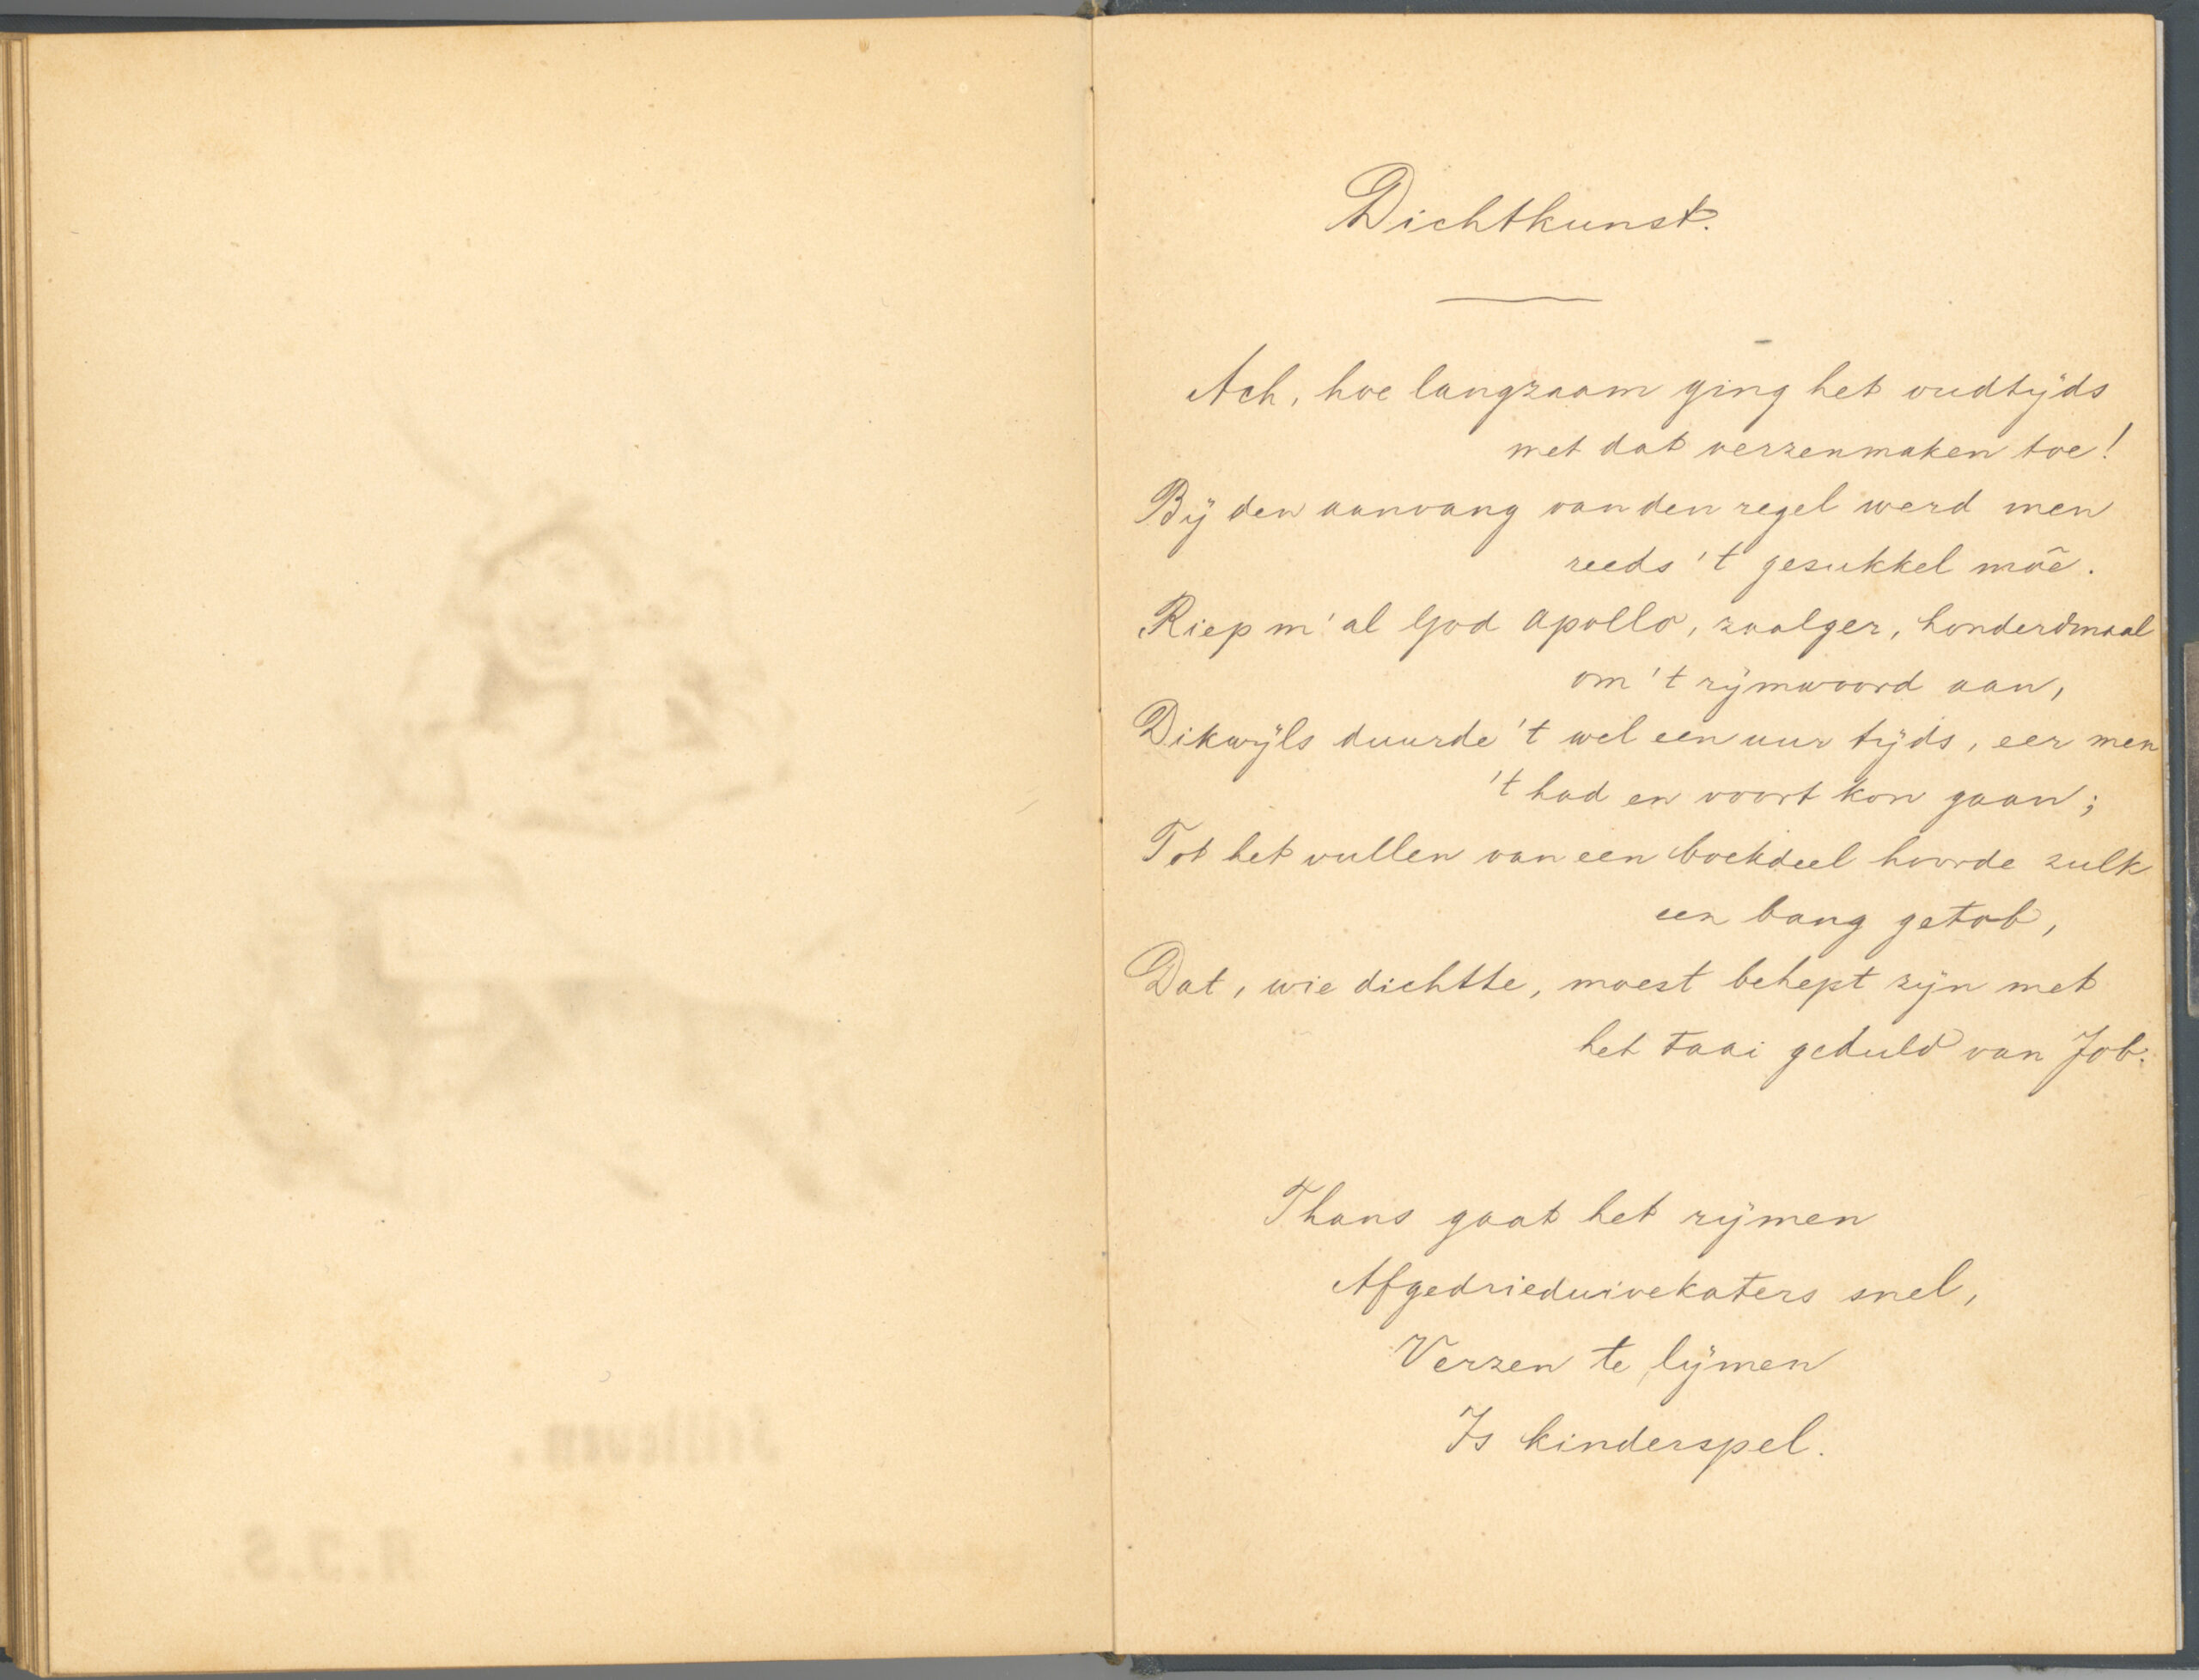 Dichtkunst.
Ach, hoe langzaam ging het oudtijds
met dat verzenmaken toe!
Bij den aanvang van den regel werd men
reeds 't gesukkel moê.
Riep m' al God Apollo, zaalger, honderdmaal
om 't rijmwoord aan,
Dikwijls duurde 't wel een uur tijds, eer men
't had en voort kon gaan;
Tot het vullen van een boekdeel hoorde zulk
een bang getob,
Dat, wie dichtte, moest behept zijn met
het taai geduld van Job.
Thans gaat het rijmen
Afgedrieduivekaters snel,
Verzen te lijmen
Is kinderspel.